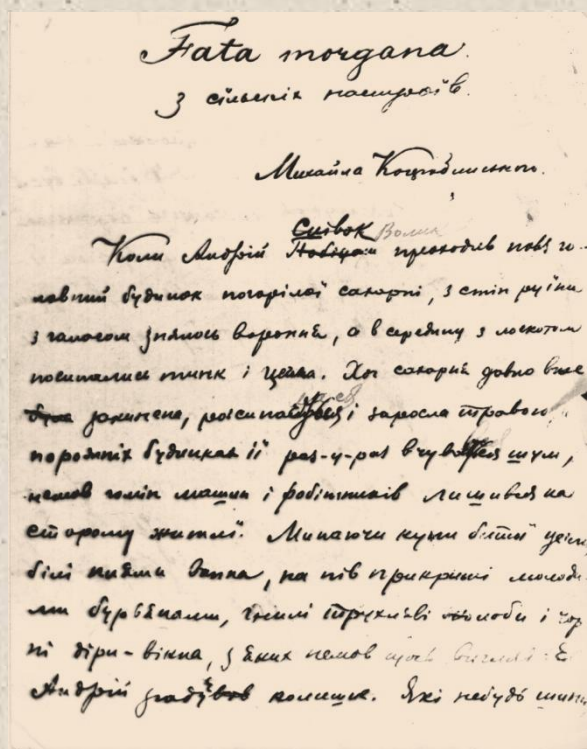 Fata morgana.
З сільських настроїв.
Михайла Коцюбинського.
Співок Волик
Коли Андрій проходив повз го-
ловний будинок погорілої сахарні, з стін руїни
з галасом знялось вороння, а в середину з лоскотом
посипались тинк і цегла. Хоч сахарня давно вже
закинена, і заросла травою,
порожніх будинках її раз-у-раз вчував шум,
немов гомін машин і робітників лишився на
старому житлі. Минаючи купи битої цегли
білі плями вапна, на пів прикриті молоди-
ми бурʼянами, гнилі трухляві жолоби і чор
ні діри-вікна, з яких немов щось
Андрій колишнє. Які небудь